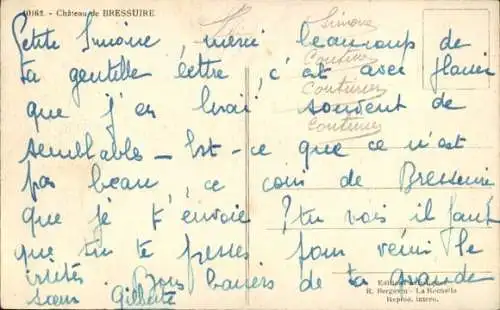 10162. - Château de BRESSUIRE
Petite Simone, merci beaucoup de
ta gentille lettre, c'est avec plaisir
que j'en lirai souvent de
semblables - Est-ce que ce n'est
pas beau, ce coin de Bressuire
que je t'envoie ? tu vois il faut
que tu te presses pour venir le
visiter. Bons baisers de ta grande
sœur Gilberte
Simone
Cousine
Couturier
Couturier
R. Bergevin - La Rochelle
Reprod. interd.